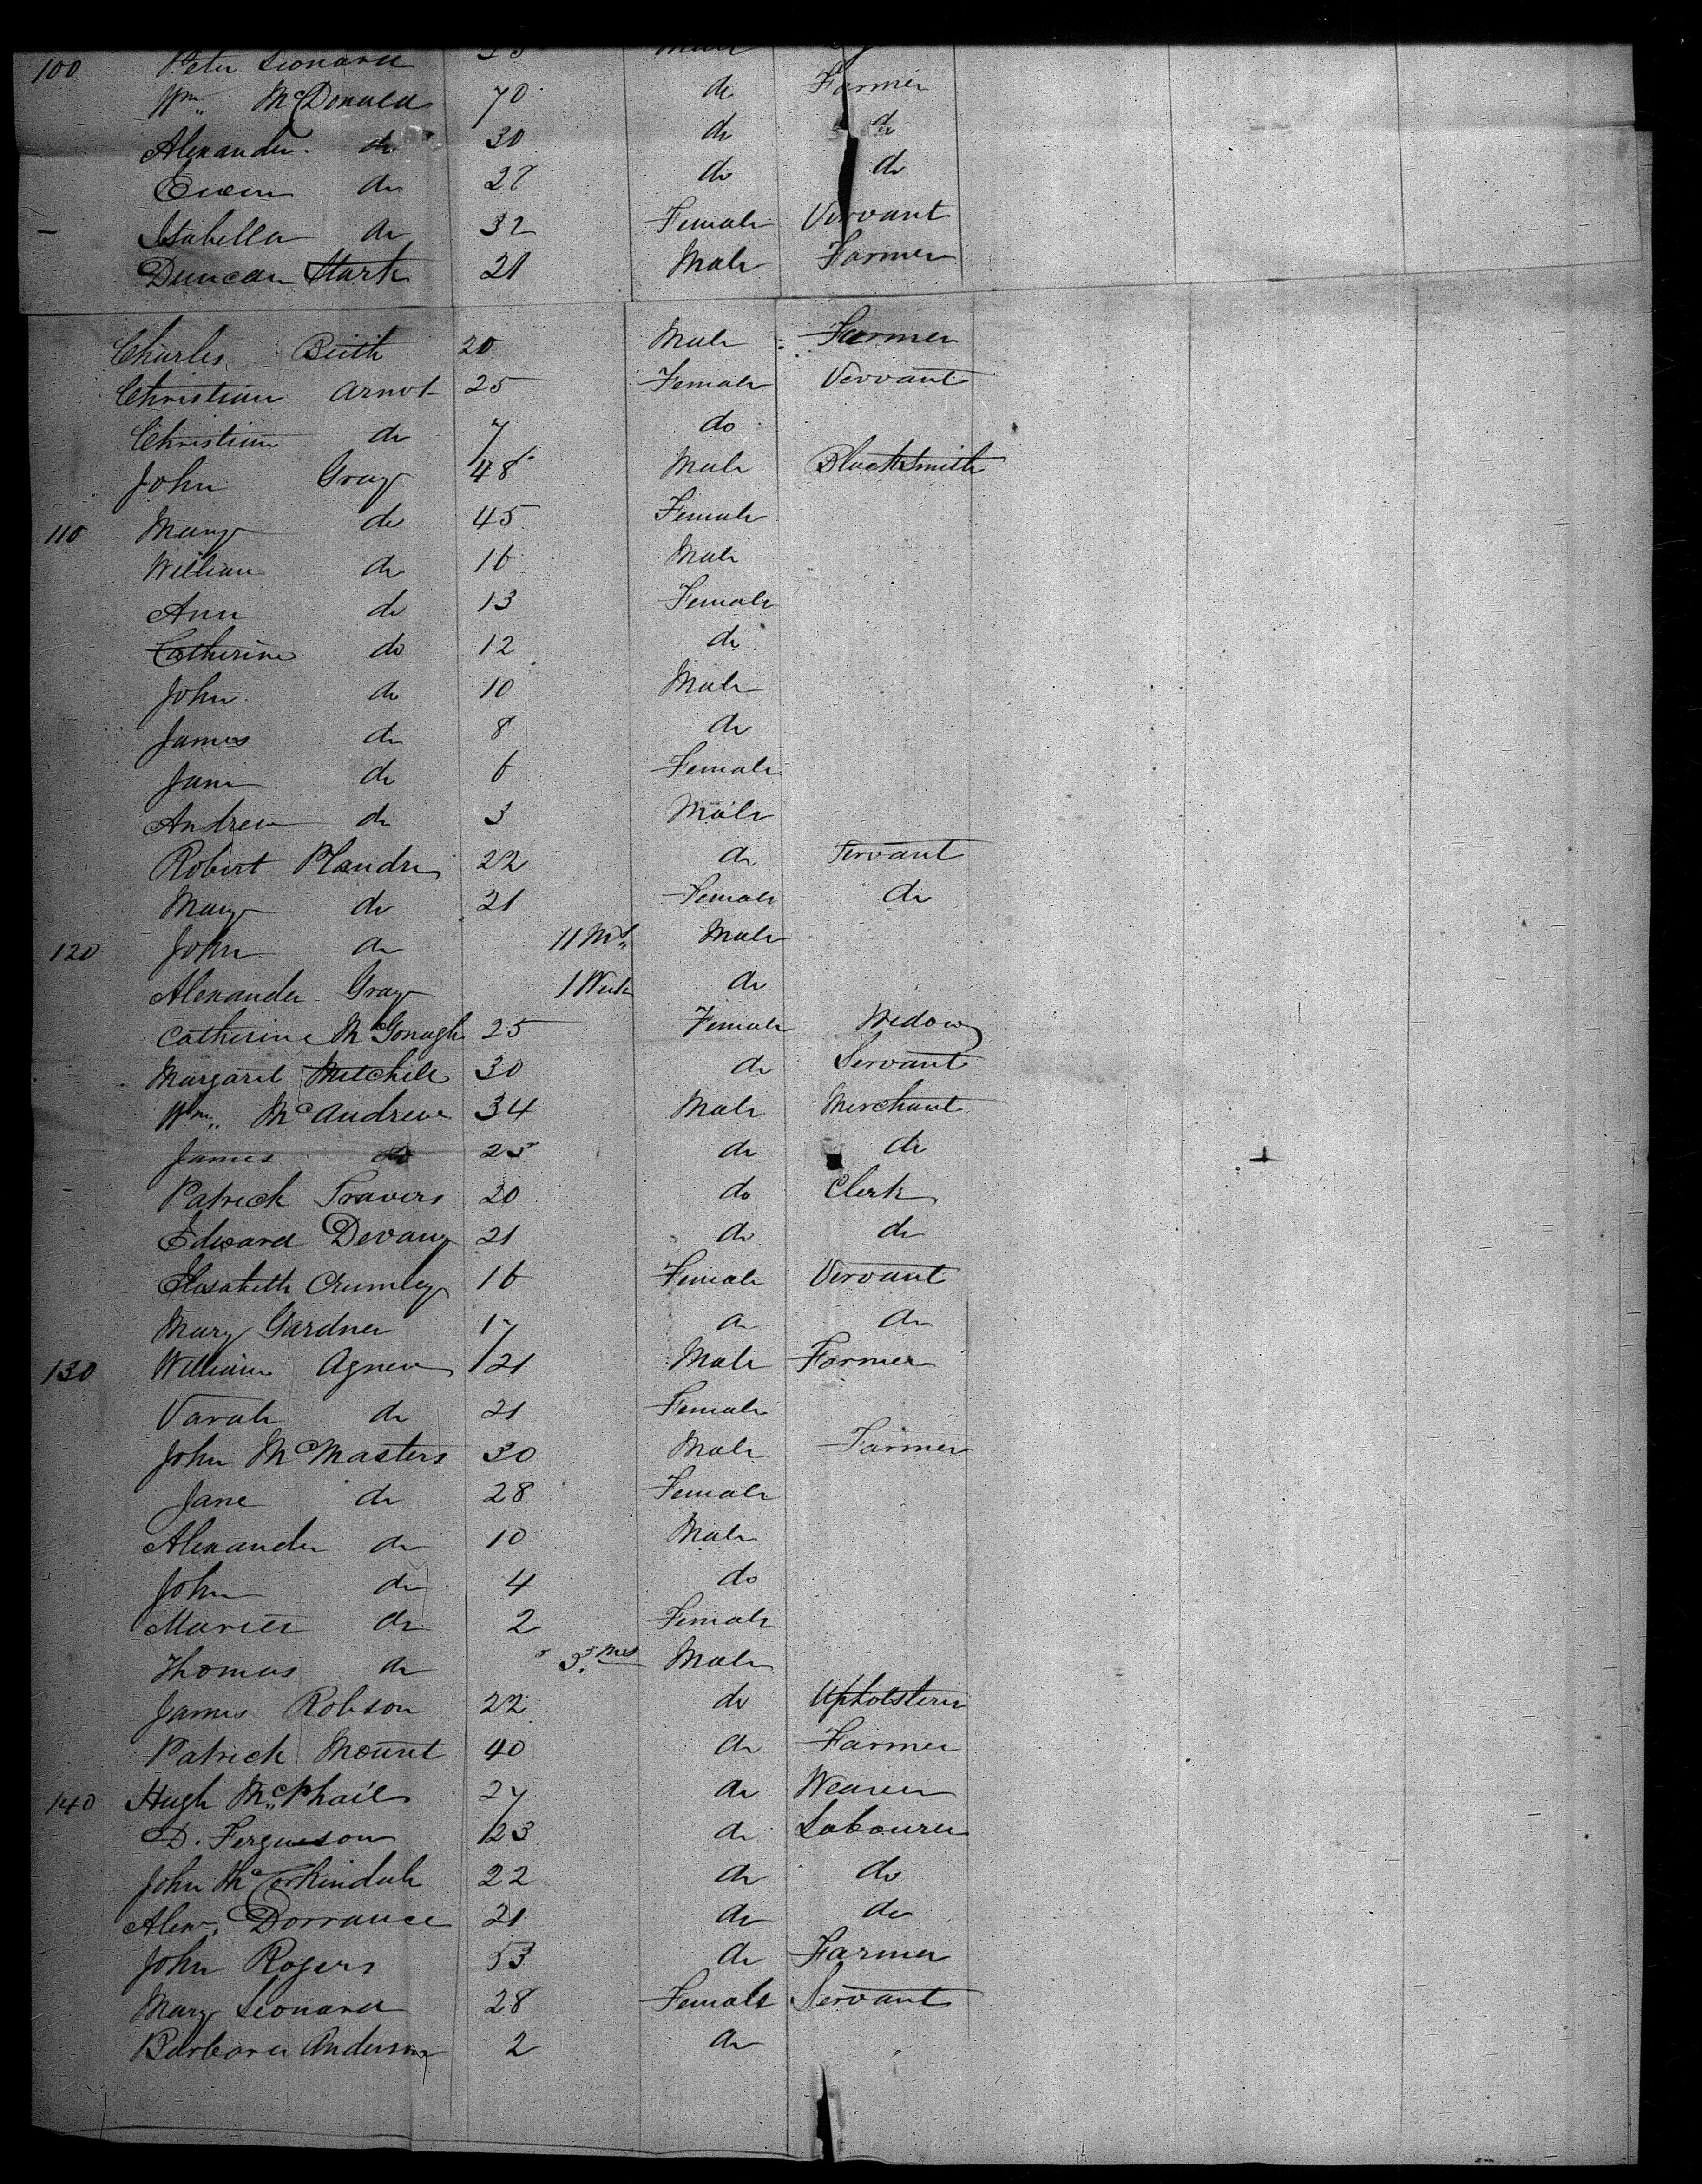 100 Peter Leonard
Wm McDonald 70 do Farmer
Alexander do 30 do do
Ewen do 27 do do
Isabella do 32 Female Servant
Duncan Stark 21 Male Farmer
Charles Beith 20 Male Farmer
Christian Arnot 25 Female Servant
Christian do 7 do
John Gray 48 Male Blacksmith
110 Mary do 45 Female
William do 16 Male
Ann do 13 Female
Catherine do 12 do
John do 10 Male
James do 8 do
Jane do 6 Female
Andrew do 3 Male
Robert 22 do Servant
Mary do 21 Female do
120 John do 11 Ms Male
Alexander Gray 1 Week do
Catherine McGonagle 25 Female Widow
Margaret Mitchell 30 do Servant
Wm McAndrew 34 Male Merchant
James do 25 do do
Patrick Travers 20 do Clerk
Edward Devany 21 do do
Elisabeth Crumley 16 Female Servant
Mary Gardner 17 do do
130 William Agnew 21 Male Farmer
Sarah do 21 Female
John McMasters 30 Male Farmer
Jane do 28 Female
Alexander do 10 Male
John do 4 do
do 2 Female
Thomas do 3 ms Male
James Robson 22 do Upholsterer
Patrick Mount 40 do Farmer
140 Hugh McPhail 27 do Weaver
D. Ferguson 23 do Labourer
John McCorkindale 22 do do
Alexr Dorrance 21 do do
John Rogers 53 do Farmer
Mary Leonard 28 Female Servant
Barbara Anderson 2 do